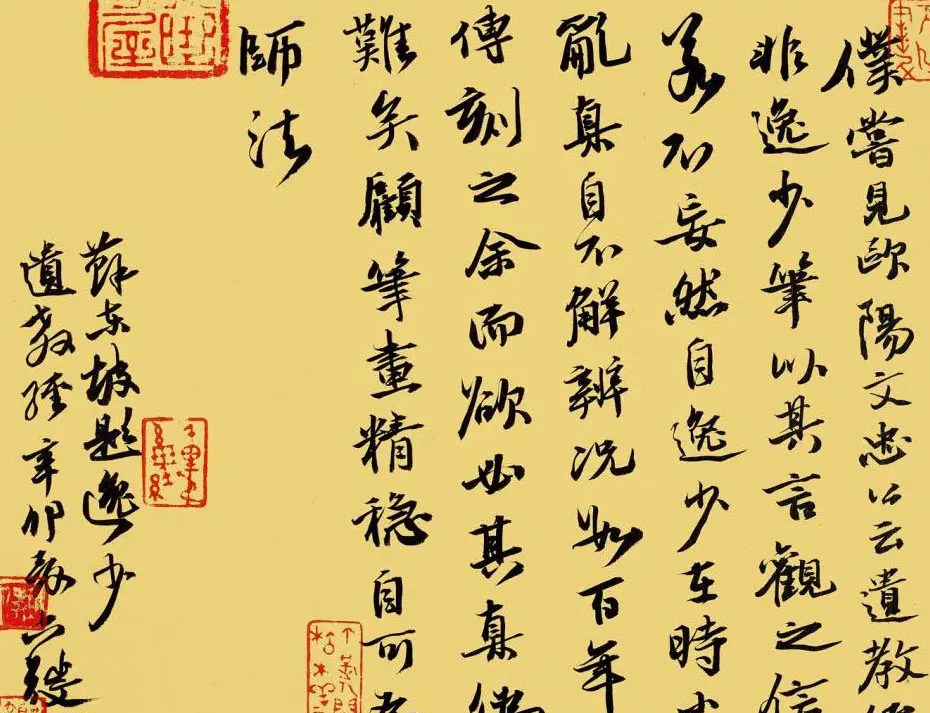 僕嘗見歐陽文忠公云遺教經
非逸少筆以其言觀之信
若不妄然自逸少在時小
亂真自不解辨況如百年
傳刻之余而欲必其真偽
難矣顧筆畫精穩自可為
師法
蘇東坡題逸少
遺教經辛卯